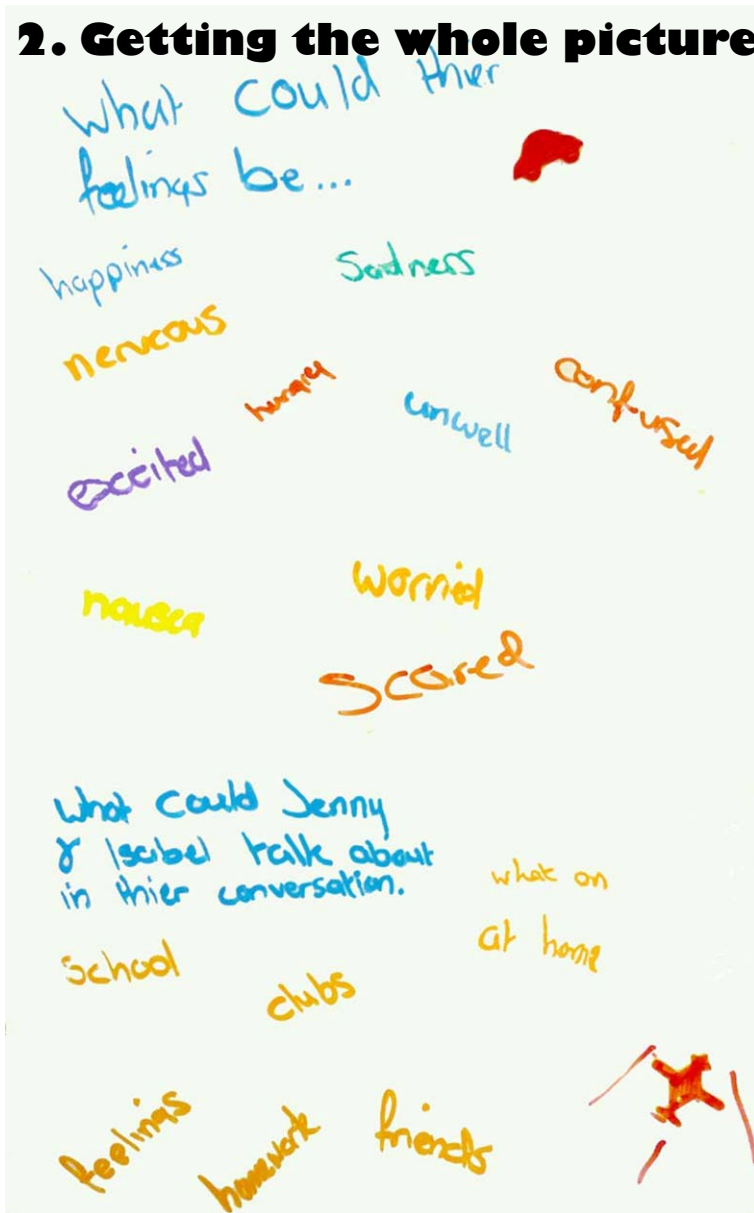 2. Getting the whole picture
what could thier
feelings be...
happiness
Sadness
nerveous
hungry
unwell
confused
excited
nausea
worried
Scared
What could Jenny
& Isabel talk about
in thier conversation.
what on
at home
School
clubs
feelings
homework
friends